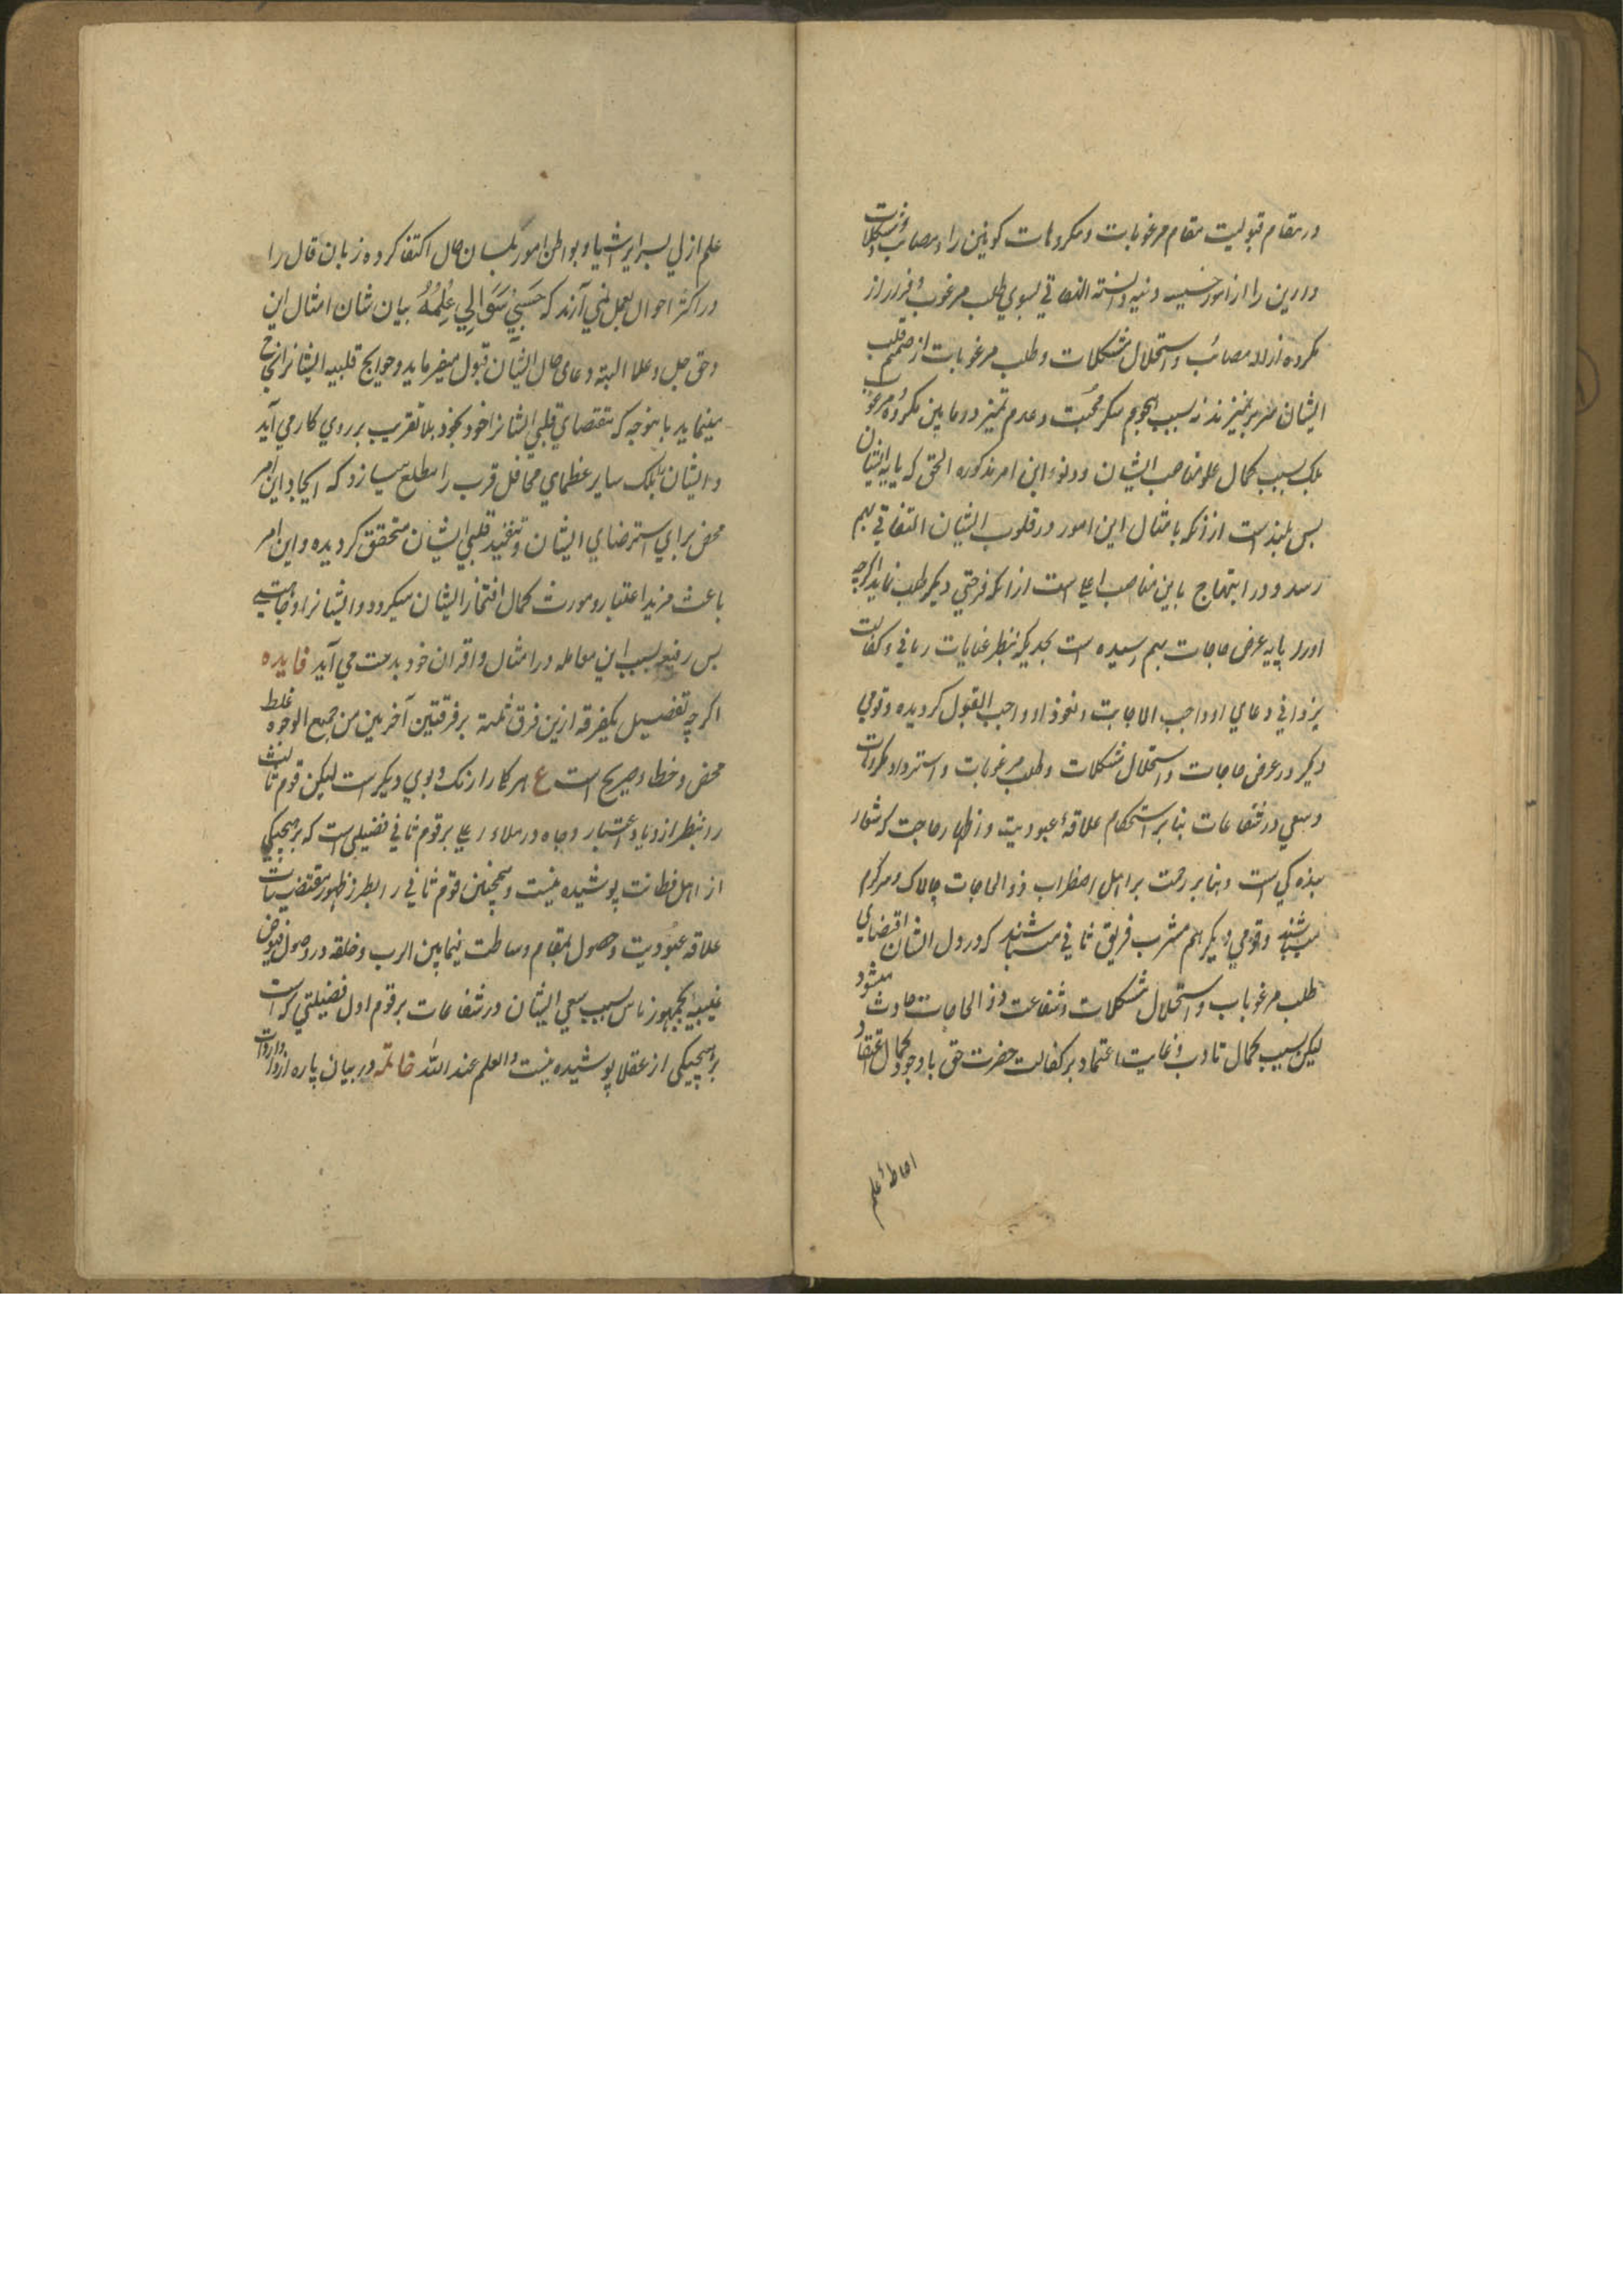 در مقام قبولیت مقام مرغوبات و مکروهات کونین را و مصائب و مشکلات
دارین را از امور خسیسه دنیه دانسته التفاتی بسوی طلب مرغوب و فرار از
مکروه ازاله مصائب و استحلال مشکلات و طلب مرغوبات از صمیم قلب
ایشان سر بر نمیزند نه بسبب هجوم سکر محبت و عدم تمیز در مابین مکروه و مرغوب
بلکه بسبب کمال علو مناصب ایشان و دنوء این امر مذکوره الحق که پایه ایشان
بس بلند است از آنکه بامثال این امور در قلوب ایشان التفاتی بهم
رسد و در ابتهاج باین مناصب اعلی است از آنکه فرحتی دیگر طلب نماید اگرچه
او را پایه عرض حاجات بهم رسیده است بحدیکه بنظر عنایات ربانی و کفالت
یزدانی دعای او واجب الاجابت و نفوذ او واجب القبول گردیده و قومی
دیگر در عرض حاجات و استحلال مشکلات و طلب مرغوبات و استرداد مکروهات
و سعی در شفاعات بنابر استحکام علاقهٔ عبودیت و اظهار حاجت که شعار
بندگی است و بنابر رحمت بر اهل اضطراب ذو الحاجات چالاک و سرگرم
میباشند و قومی دیگر هم مشرب فریق ثانی میباشند که در دل ایشان اقتضای
طلب مرغوبات و استحلال مشکلات و شفاعت ذو الحاجات حادث میشود
لیکن بسبب کمال تادب و غایت اعتماد بر کفالت حضرت حق با وجود کمال اعتقاد
احاطهٔ علم
علم ازلی بسرایر اشیا و بواطن امور بلسان حال اکتفا کرده زبان قال را
در اکثر احوال بعمل نمی آرند که حَسْبِي سُؤَالِي عِلْمُهُ بیان شان امثال این
و حق جل و علا البته دعای حال ایشان قبول میفرماید و حوایج قلبیه ایشانرا انجاح
مینماید باینوجه که مقتضای قلبی ایشانرا خود بخود بلا تقریب بر روی کار می آید
و ایشان بلکه سایر عظمای محافل قرب را مطلع میسازد که ایجاد این امر
محض برای استرضای ایشان و تنفیذ قلبی ایشان متحقق گردیده و این امر
باعث مزید اعتبار و مورث کمال افتخار ایشان میگردد و ایشانرا وجاهتی
بس رفیع بسبب این معامله در امثال و اقران خود بدست می آید فایده
اگرچه تفضیل یکفرقه ازین فرق ثلثه بر فرقتین آخرین من جمیع الوجوه غلط
محض و خطا صریح است ع هر کار را رنگ و بوی دیگر است لیکن قوم ثالث
را بنظر ازدیاد اعتبار و جاه در ملاء اعلی بر قوم ثانی فضیلی است که بر هیچیکی
از اهل فطانت پوشیده نیست و همچنین قوم ثانی را بنظر ظهور مقتضیات
علاقه عبودیت و حصول مقام وساطت فیمابین الرب و خلقه در وصول فیوض
غیبیه بجمهور ناس بسبب سعی ایشان در شفاعات بر قوم اول فضیلتی که است
بر هیچیکی از عقلا پوشیده نیست والعلم عند الله خاتمه در بیان پاره از واردات